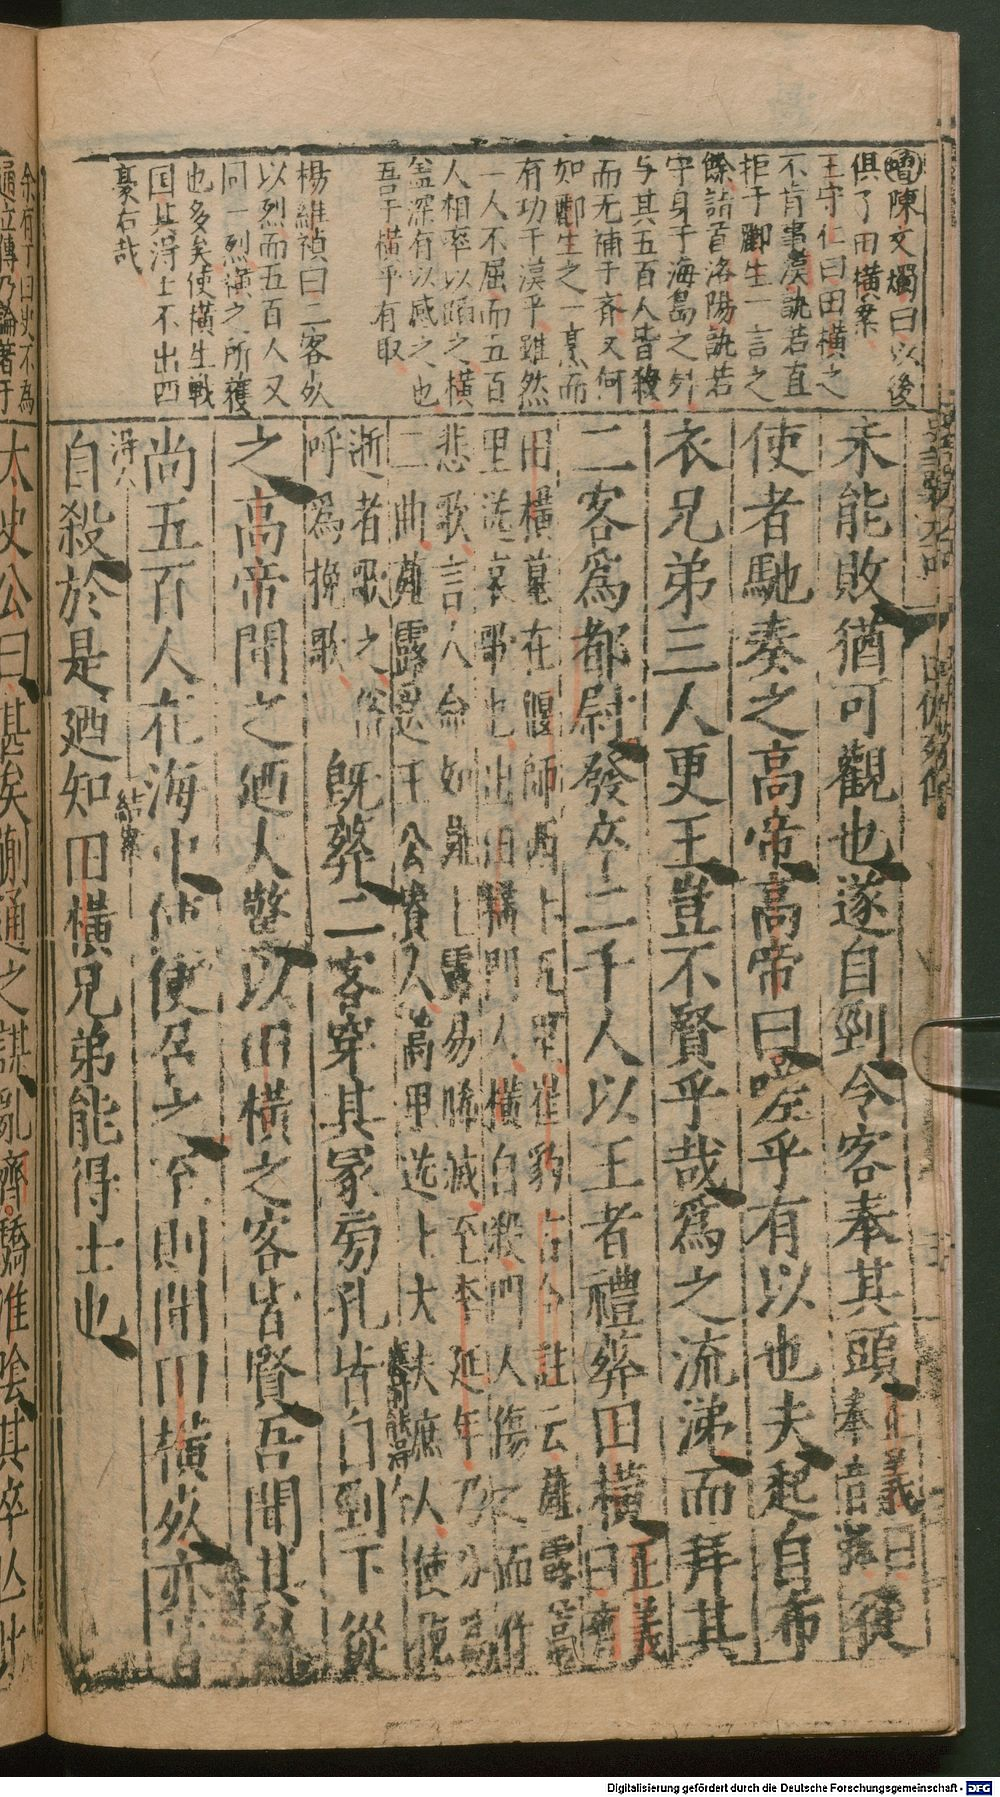 增陳文燭曰以後
俱了田橫案
王守仁曰田橫之
不肯事漢訑若直
拒于酈生一言之
餘詣首洛陽訑若
守身于海島之外
与其五百人皆殺
而无補于斉又何
如酈生之一烹而
有功于漢乎雖然
一人不屈而五百
人相率以蹈之橫
盖深有以感之也
吾于橫乎有取
楊維禎曰二客死
以烈而五百人又
同一烈橫之所獲
也多矣使橫生戰
国其淂士不出四
豪右哉
未能敗猶可觀也遂自剄令客奉其頭
正義曰
奉音捧
從
使者馳奏之高帝高帝曰嗟乎有以也夫起自布
衣兄弟三人更王豈不賢乎哉爲之流涕而拜其
二客爲都尉發卒二千人以王者禮葬田橫
正義
曰齊
田橫墓在偃師西十五里崔豹古今註云薤露蒿
里送哀歌也出田橫門人橫自殺門人傷之而作
悲歌言人命如薤上露易晞滅至李延年乃分爲
二曲薤露送王公貴人蒿里送士大夫庶人使挽
逝者歌之俗
呼爲挽歌
既葬二客穿其冢旁孔皆自剄下從
之高帝聞之廼大驚以田橫之客皆賢吾聞其餘
尚五百人在海中使使召之至則聞田橫死亦皆
自殺於是廼知田橫兄弟能得士也
結案
太史公曰甚矣蒯通之謀亂齊驕淮陰其卒亡此
余有丁曰史不為
通立傳乃論著于
Digitalisierung gefördert durch die Deutsche Forschungsgemeinschaft - DFG